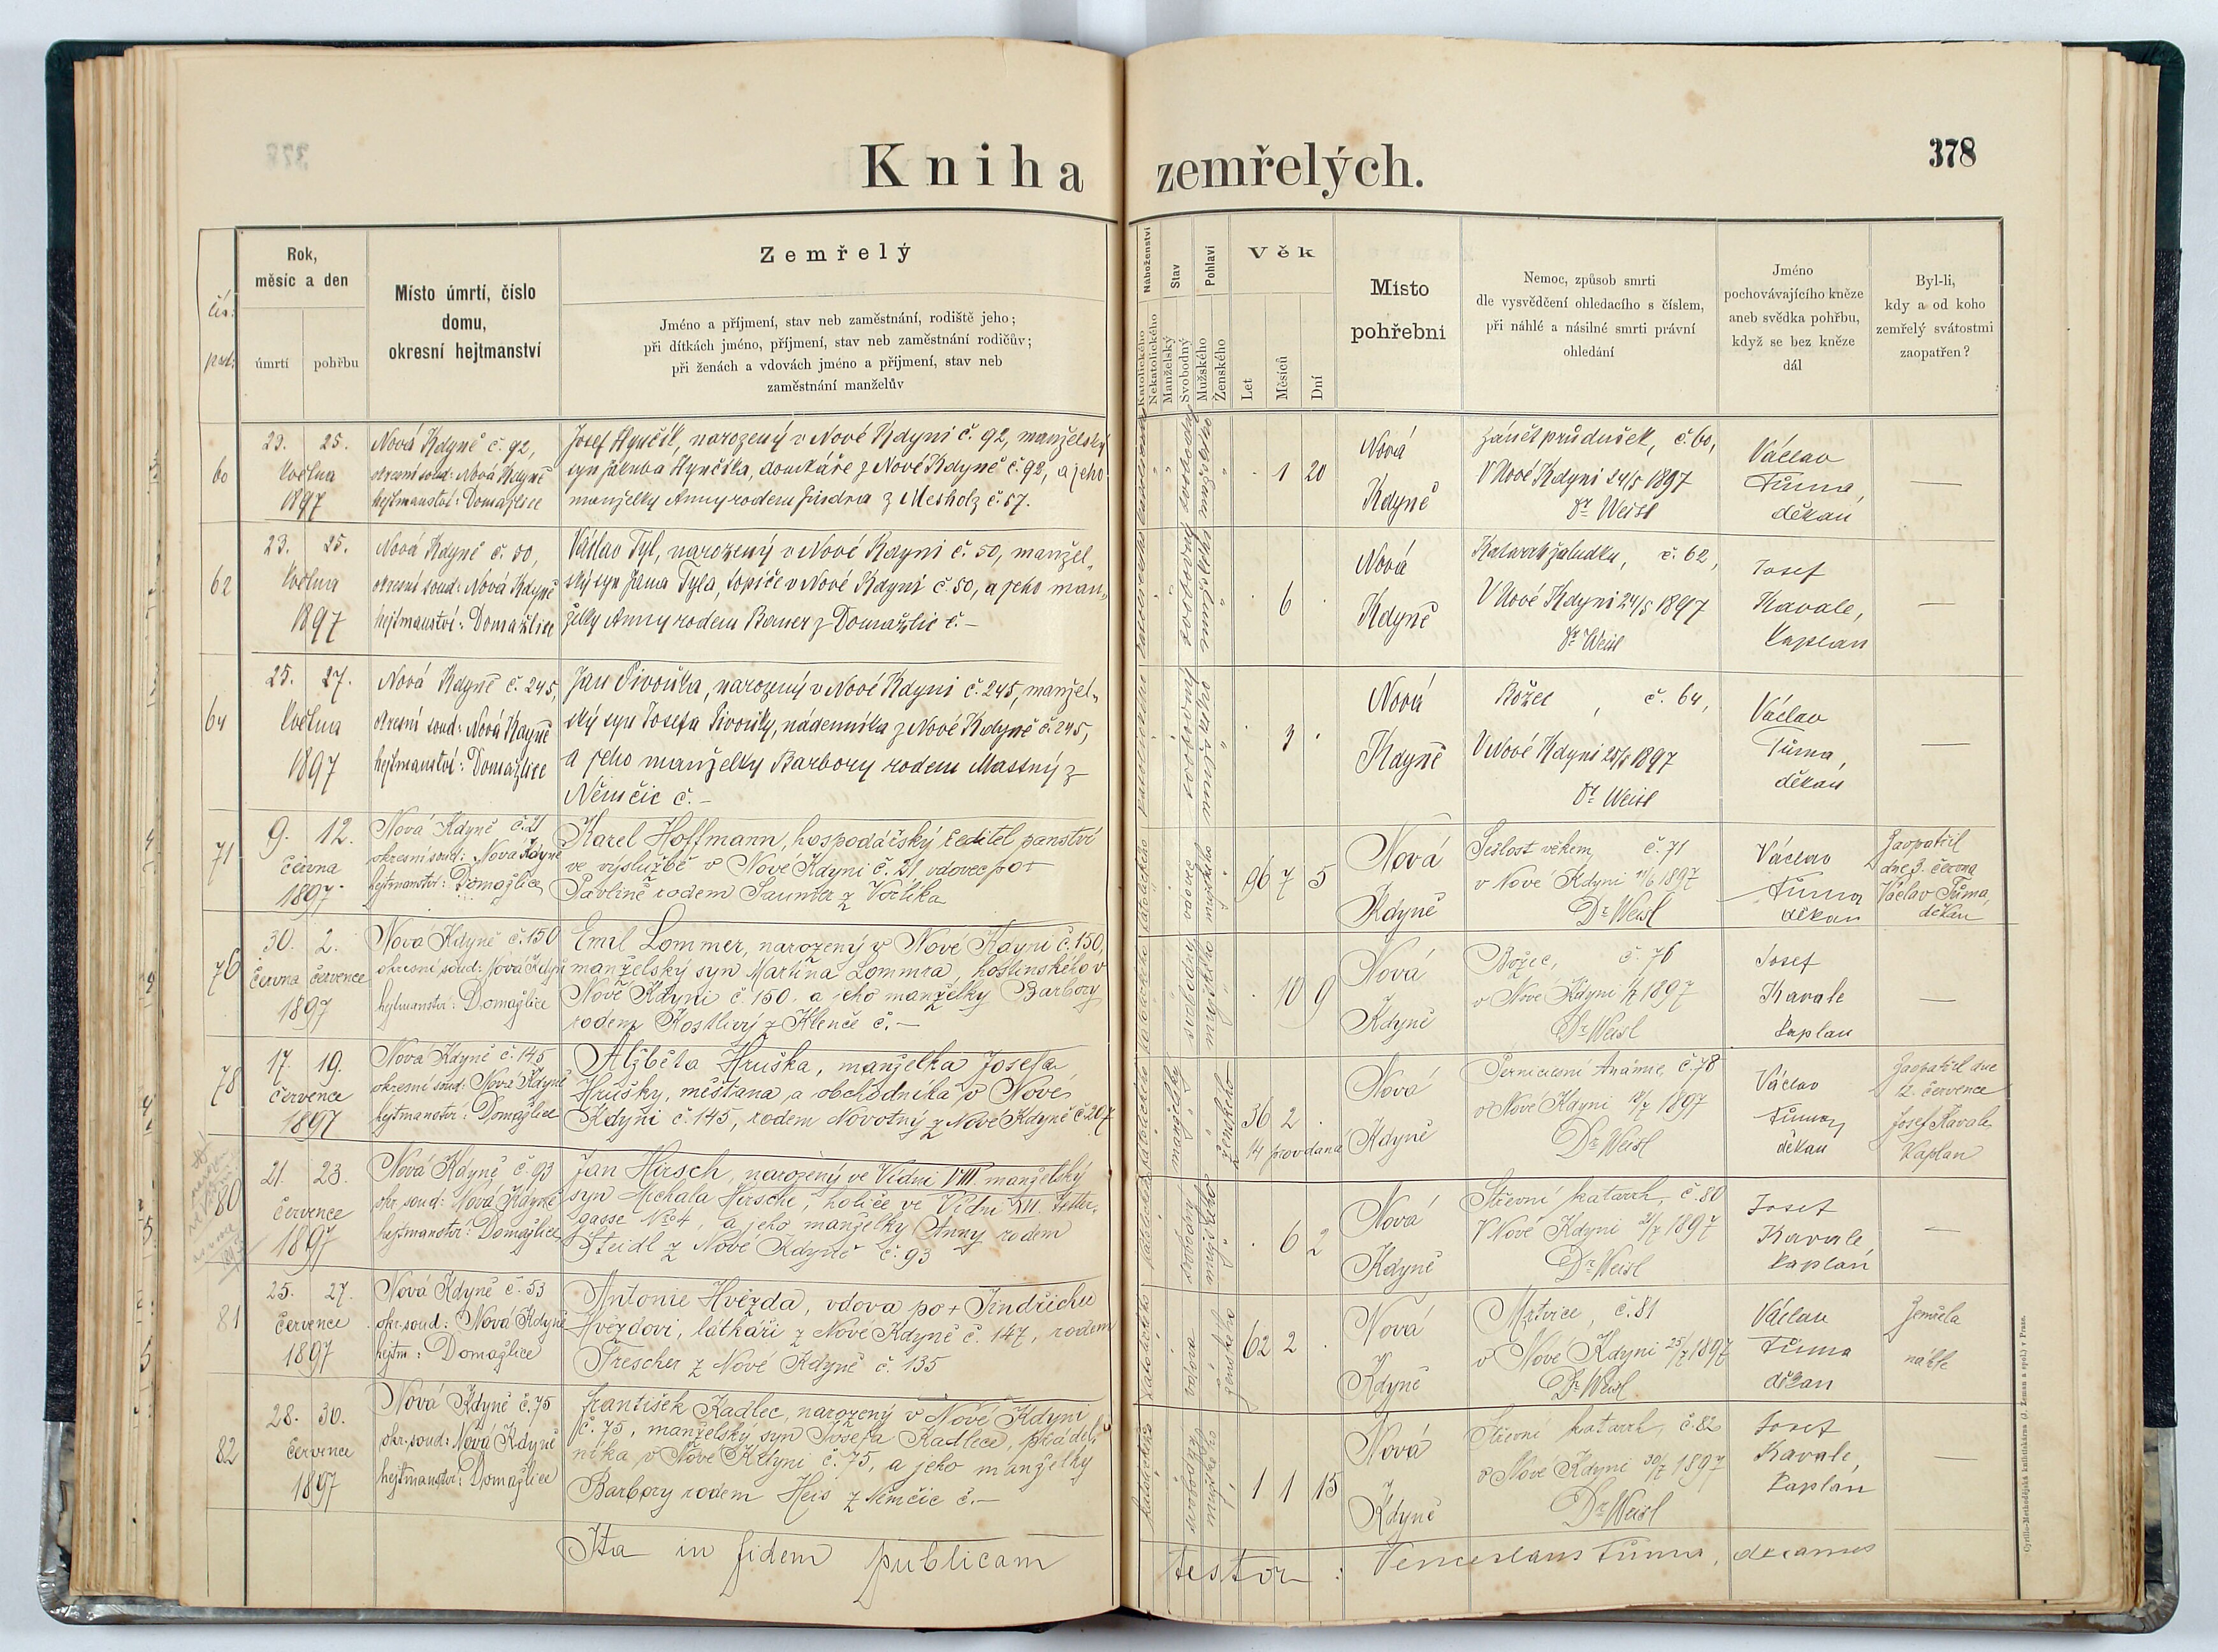 Kniha zemřelých.
378
čís:
poř:
Rok,
měsíc a den
úmrtí
pohřbu
Místo úmrtí, číslo
domu,
okresní hejtmanství
Zemřelý
Jméno a příjmení, stav neb zaměstnání, rodiště jeho;
při dítkách jméno, příjmení, stav neb zaměstnání rodičův;
při ženách a vdovách jméno a příjmení, stav neb
zaměstnání manželův
Náboženství
Katolického
Nekatolického
Stav
Manželský
Svobodný
Pohlaví
Mužského
Ženského
Věk
Let
Měsíců
Dní
Místo
pohřební
Nemoc, způsob smrti
dle vysvědčení ohledacího s číslem,
při náhlé a násilné smrti právní
ohledání
Jméno
pochovávajícího kněze
aneb svědka pohřbu,
když se bez kněze
dál
Byl-li,
kdy a od koho
zemřelý svátostmi
zaopatřen?
60
23. 25.
Května
1897
Nová Kdyně č. 92,
okresní soud: Nová Kdyně
hejtmanství: Domažlice
Josef Hynčík, narozený v Nové Kdyni č. 92, manželský
syn Jakuba Hynčíka, domkáře z Nové Kdyně č. 92, a jeho
manželky Anny rodem Jindra z Mesholz č. 57.
1 20
Nová
Kdyně
Zánět průdušek, č. 60,
V Nové Kdyni 24/5 1897
Dr. Weisl
Václav
Tůma,
děkan
—
62
23. 25.
Května
1897
Nová Kdyně č. 50,
okresní soud: Nová Kdyně
hejtmanství: Domažlice
Václav Tyl, narozený v Nové Kdyni č. 50, manžel-
ský syn Jana Tyla, topiče v Nové Kdyni č. 50, a jeho man-
želky Anny rodem Bauer z Domažlic č. –
6
Nová
Kdyně
Katarrh žaludku, č. 62,
V Nové Kdyni 24/5 1897
Dr. Weisl
Josef
Kavale,
kaplan
—
64
25. 27.
Května
1897
Nová Kdyně č. 245,
okresní soud: Nová Kdyně
hejtmanství: Domažlice
Jan Pivoňka, narozený v Nové Kdyni č. 245, manžel-
ský syn Josefa Pivoňky, nádenníka z Nové Kdyně č. 245,
a jeho manželky Barbory rodem Mastný z
Němčic č. –
3
Nová
Kdyně
Božec, č. 64,
V Nové Kdyni 25/5 1897
Dr. Weisl
Václav
Tůma,
děkan
—
71
9. 12.
června
1897
Nová Kdyně č. 21
okresní soud: Nová Kdyně
hejtmanství: Domažlice
Karel Hoffmann, hospodářský ředitel panství
ve výslužbě v Nové Kdyni č. 21, vdovec po +
Pavlíně rodem Saumer z Vorlíka
96 7 5
Nová
Kdyně
Sešlost věkem, č. 71
v Nové Kdyni 11/6 1897
Dr. Weisl
Václav
Tůma
děkan
Zaopatřil
dne 3. června
Václav Tůma,
děkan
76
30. 2.
června července
1897
Nová Kdyně č. 150
okresní soud: Nová Kdyně
hejtmanství: Domažlice
Emil Lommer, narozený v Nové Kdyni č. 150,
manželský syn Martina Lommra, hostinského v
Nové Kdyni č. 150, a jeho manželky Barbory
rodem Kostlivý z Klenče č. –
10 9
Nová
Kdyně
Božec, č. 76
v Nové Kdyni 1/7 1897
Dr. Weisl
Josef
Kavale
kaplan
—
78
17. 19.
července
1897
Nová Kdyně č. 145
okresní soud: Nová Kdyně
hejtmanství: Domažlice
Alžběta Hruška, manželka Josefa
Hrušky, měšťana a obchodníka v Nové
Kdyni č. 145, rodem Novotný z Nové Kdyně č. 207
36 2
14 provdaná
Nová
Kdyně
Perniciosní Anämie, č. 78
v Nové Kdyni 18/7 1897
Dr. Weisl
Václav
Tůma
děkan
Zaopatřil dne
12. července
Josef Kavale
kaplan
80
21. 23.
července
1897
Nová Kdyně č. 93
okr. soud: Nová Kdyně
hejtmanství: Domažlice
Jan Hirsch, narozený ve Vídni VIII. manželský
syn Michala Hirsche, holiče ve Vídni
gasse No 4, a jeho manželky Anny rodem
Steidl z Nové Kdyně č. 93
6 2
Nová
Kdyně
Střevní katarrh, č. 80
V Nové Kdyni 21/7 1897
Dr. Weisl
Josef
Kavale,
kaplan
—
81
25. 27.
července
1897
Nová Kdyně č. 53
okr. soud: Nová Kdyně
hejtm: Domažlice
Antonie Hvězda, vdova po + Jindřichu
Hvězdovi, látkáři z Nové Kdyně č. 147, rodem
Trescher z Nové Kdyně č. 135
62 2
Nová
Kdyně
Mrtvice, č. 81
v Nové Kdyni 25/7 1897
Dr. Weisl
Václav
Tůma
děkan
Zemřela
náhle
82
28. 30.
července
1897
Nová Kdyně č. 75
okr. soud: Nová Kdyně
hejtmanství: Domažlice
František Kadlec, narozený v Nové Kdyni
č. 75, manželský syn Josefa Kadlece, přádel-
níka v Nové Kdyni č. 75, a jeho manželky
Barbory rodem Heis z Němčic č. –
1 1 15
Nová
Kdyně
Střevní katarrh, č. 82
v Nové Kdyni 30/7 1897
Dr. Weisl
Josef
Kavale,
kaplan
—
Ita in fidem publicam testor: Venceslaus Tůma, decanus
Cyrillo-Methodějská knihtiskárna (J. Zeman a spol.) v Praze.